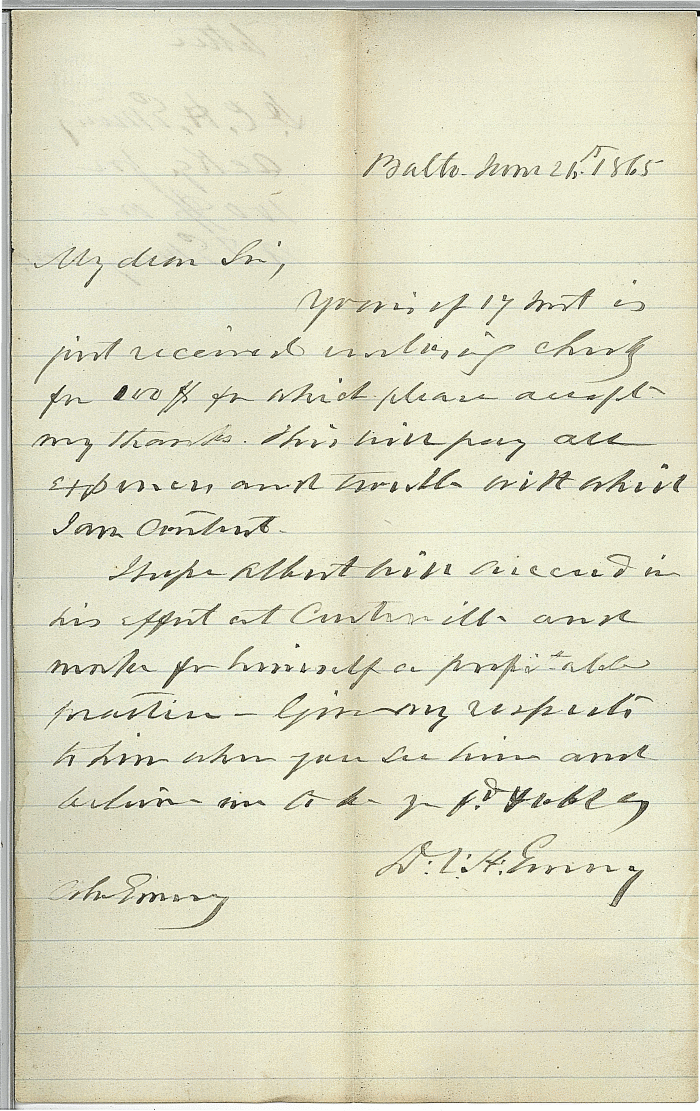 Balto. Nov 21st 1865
My dear Sir,
Yours of 17 inst is
just received enclosing check
for 100 $ for which please accept
my thanks. This will pay all
expenses and trouble with which
I am content.
I hope Albert will succeed in
his effort at Centreville and
make for himself a profitable
practice – Give my respects
to him when you see him and
believe me to be yr
D. C. H. Emory
Emory
letter
D. C. H. Emory